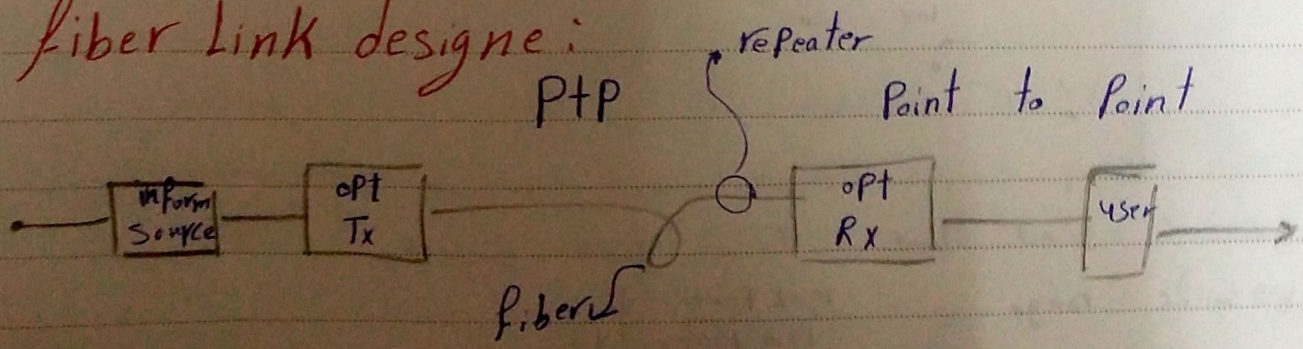 fiber Link designe:
repeater
PtP
Point to Point
inform
Source
opt
Tx
opt
Rx
user
fiber